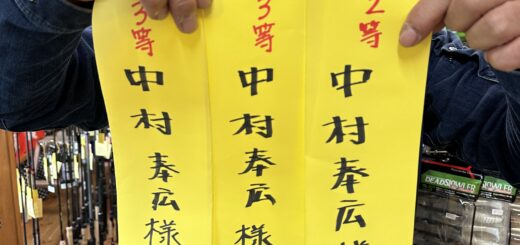 2等
中村奉広様
3等
中村奉広様
3等
中村奉広様
DEADSLOWLER